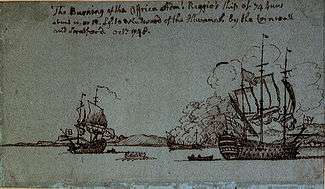 The Burning of the Africa Adml. Reggio's ship of 74 Guns
about 11 or 12 L. to Windward of the Havanah by the Cornwall
and Strafford Octr. 1748.